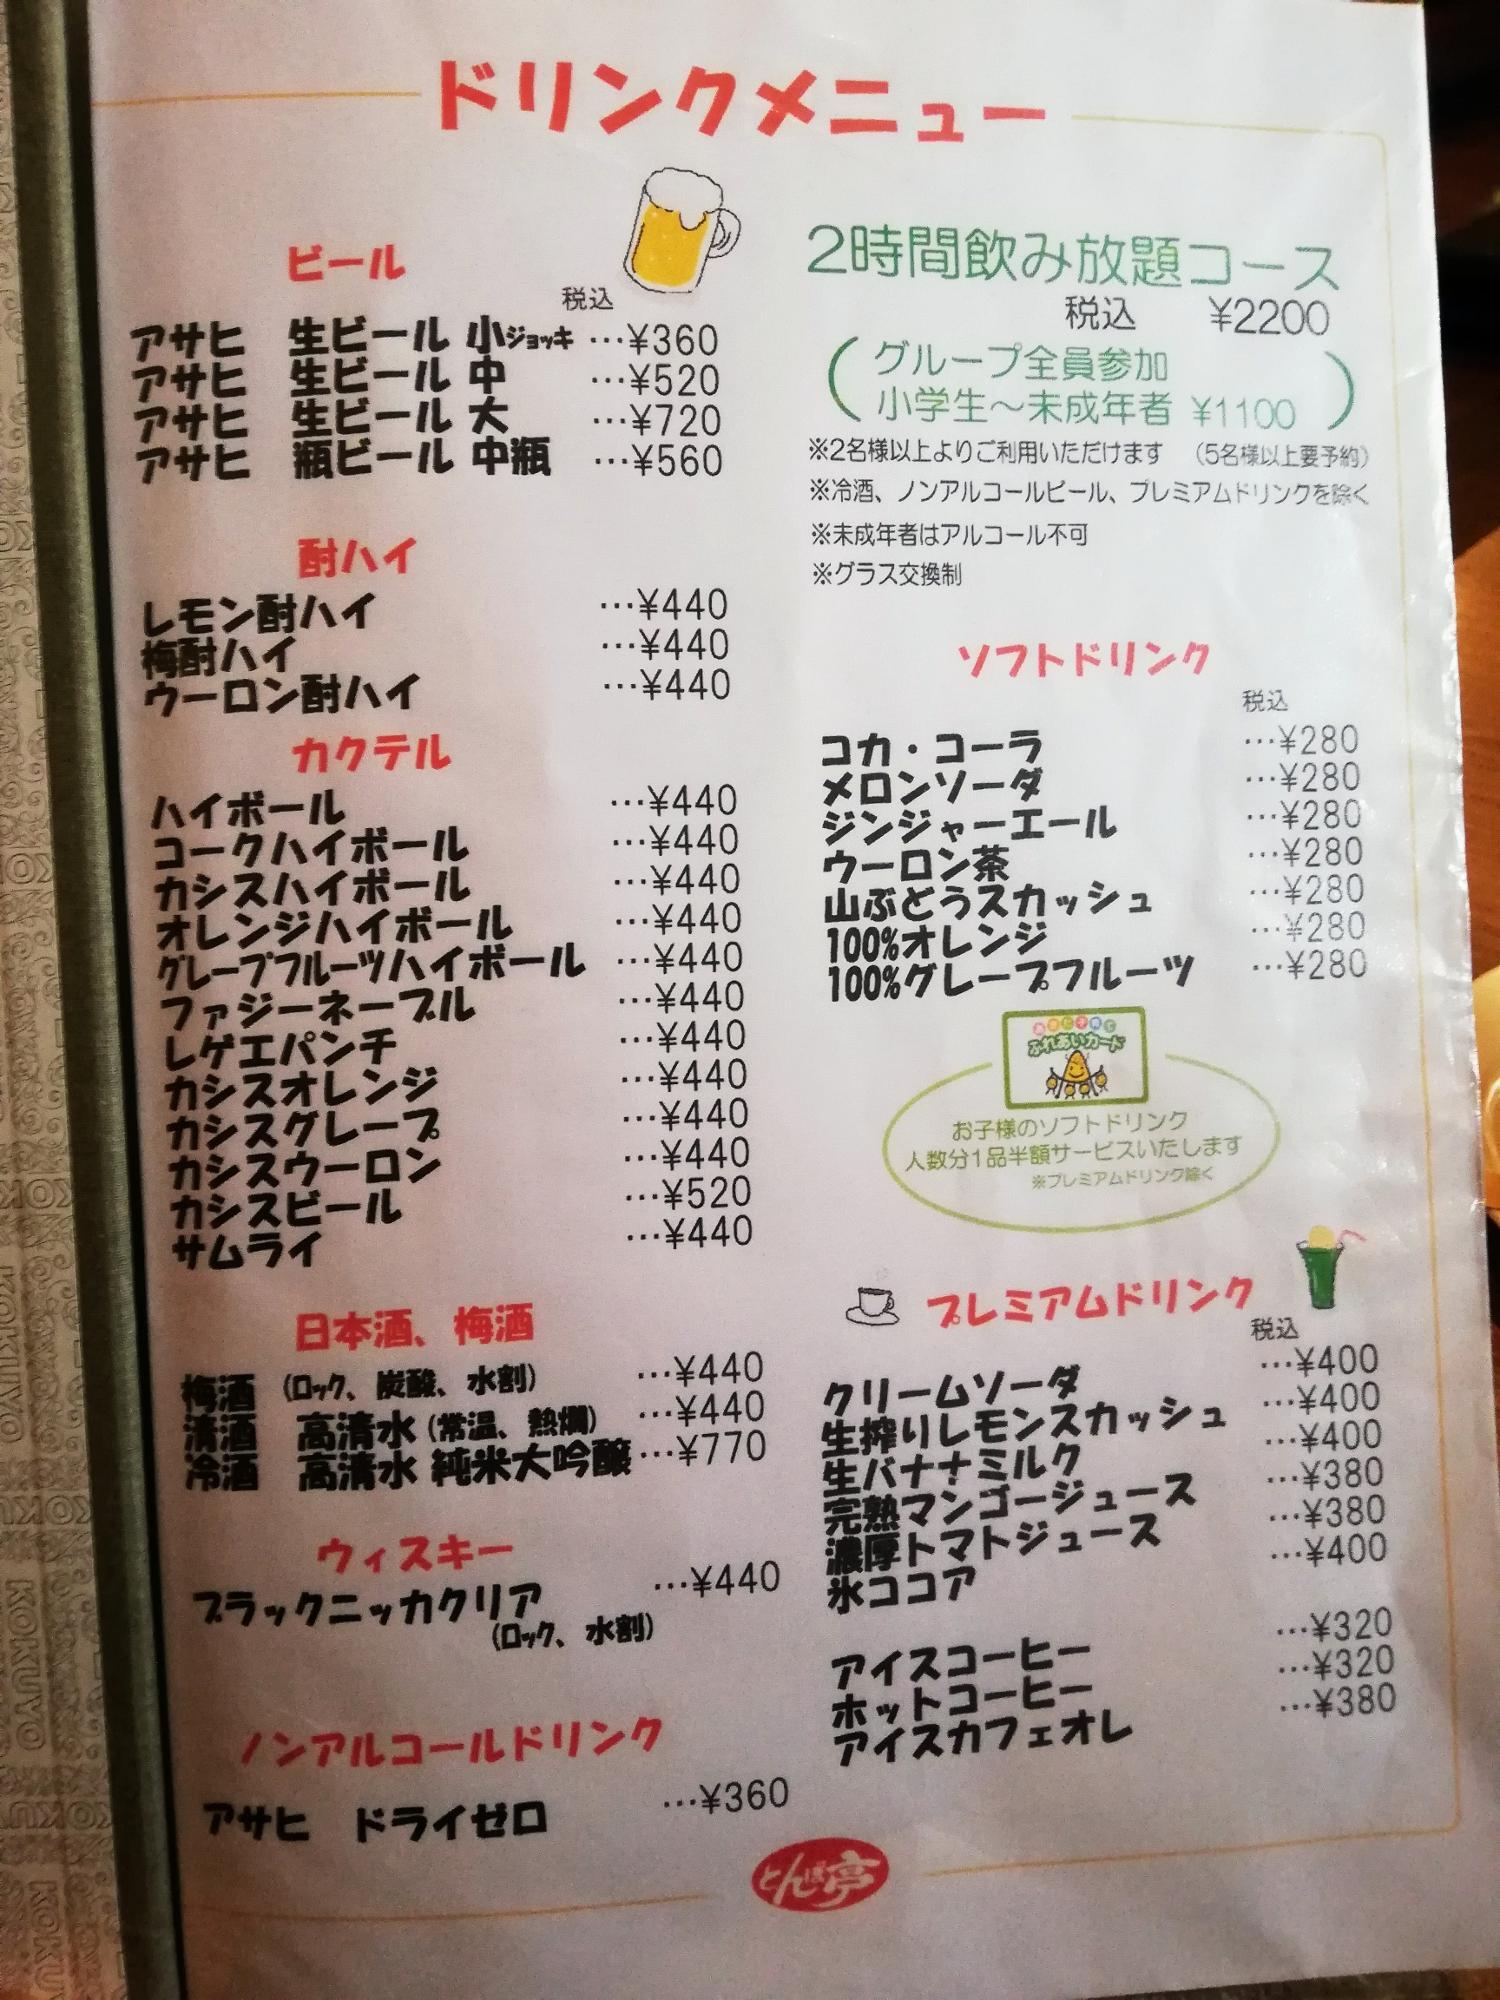 ドリンクメニュー
ビール
税込
アサヒ 生ビール 小ジョッキ …¥360
アサヒ 生ビール 中 …¥520
アサヒ 生ビール 大 …¥720
アサヒ 瓶ビール 中瓶 …¥560
酎ハイ
レモン酎ハイ …¥440
梅酎ハイ …¥440
ウーロン酎ハイ …¥440
カクテル
ハイボール …¥440
コークハイボール …¥440
カシスハイボール …¥440
オレンジハイボール …¥440
グレープフルーツハイボール …¥440
ファジーネーブル …¥440
レゲエパンチ …¥440
カシスオレンジ …¥440
カシスグレープ …¥440
カシスウーロン …¥440
カシスビール …¥520
サムライ …¥440
日本酒、梅酒
梅酒 (ロック、炭酸、水割) …¥440
清酒 高清水 (常温、熱燗) …¥440
冷酒 高清水 純米大吟醸 …¥770
ウィスキー
ブラックニッカクリア …¥440
(ロック、水割)
ノンアルコールドリンク
アサヒ ドライゼロ …¥360
2時間飲み放題コース
税込 ¥2200
(グループ全員参加
小学生〜未成年者 ¥1100)
※2名様以上よりご利用いただけます (5名様以上要予約)
※冷酒、ノンアルコールビール、プレミアムドリンクを除く
※未成年者はアルコール不可
※グラス交換制
ソフトドリンク
税込
コカ・コーラ …¥280
メロンソーダ …¥280
ジンジャーエール …¥280
ウーロン茶 …¥280
山ぶどうスカッシュ …¥280
100%オレンジ …¥280
100%グレープフルーツ …¥280
ふれあいカード
お子様のソフトドリンク
人数分1品半額サービスいたします
※プレミアムドリンク除く
プレミアムドリンク
税込
クリームソーダ …¥400
生搾りレモンスカッシュ …¥400
生バナナミルク …¥400
完熟マンゴージュース …¥380
濃厚トマトジュース …¥380
氷ココア …¥400
アイスコーヒー …¥320
ホットコーヒー …¥320
アイスカフェオレ …¥380
とんぼ亭
KOKUYO